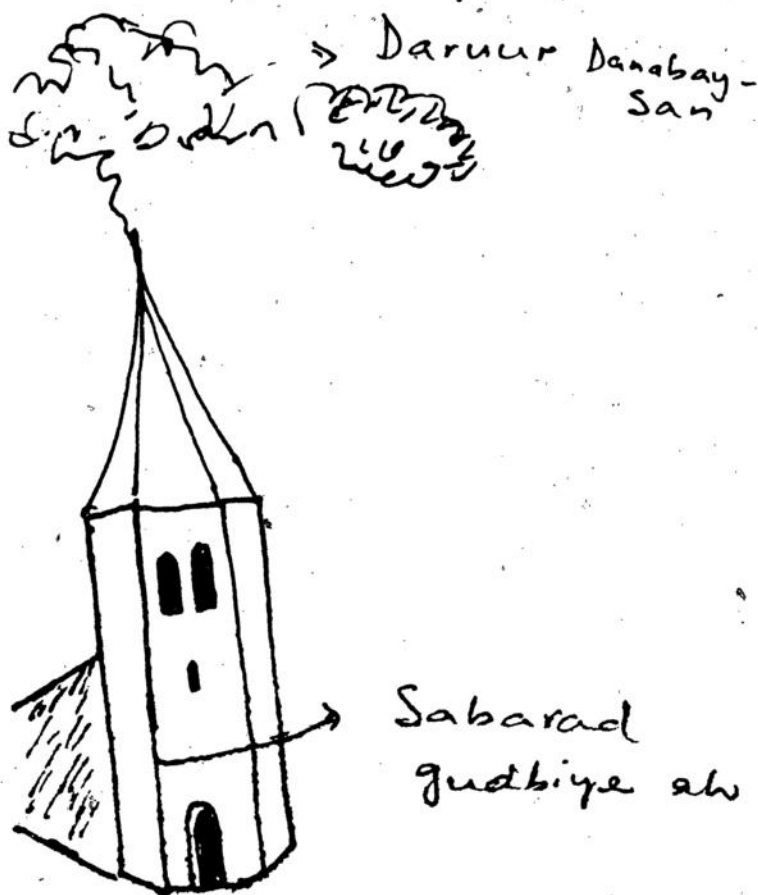 Daruur Danabay-
san
Sabarad
gudbiye ah